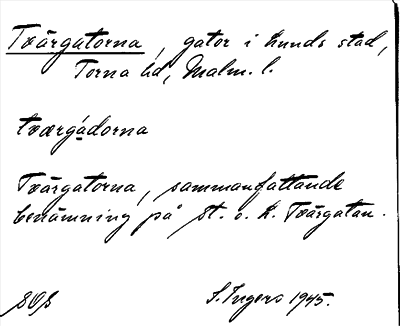 Tvärgatorna, gator i Lunds stad,
Torna hd, Malm. l.
tværgádorna
Tvärgatorna, sammanfattande
benämning på St. o. L. Tvärgatan.
S. Ingers 1945.